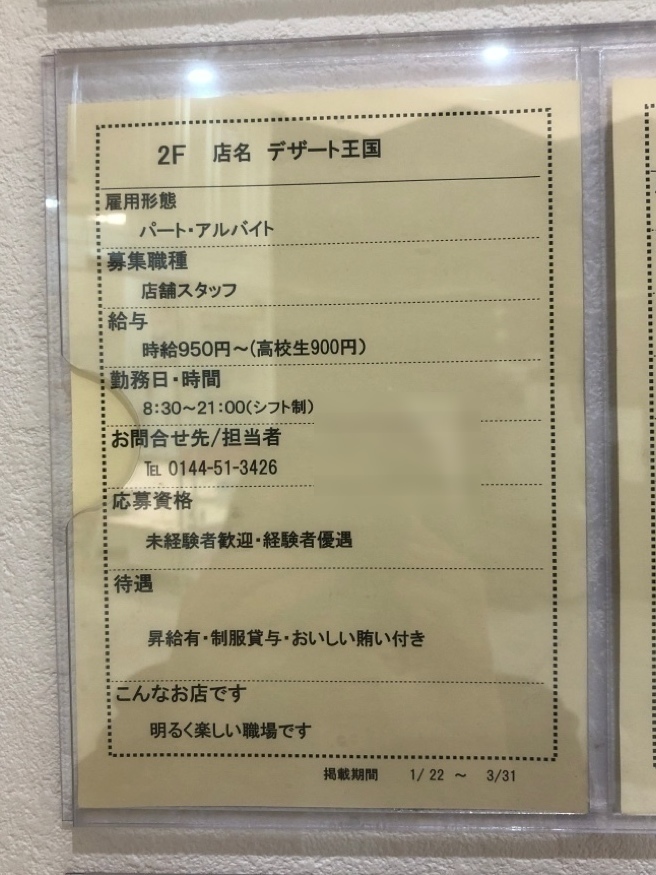 2F 店名 デザート王国
雇用形態
パート・アルバイト
募集職種
店舗スタッフ
給与
時給950円～(高校生900円)
勤務日・時間
8:30～21:00(シフト制)
お問合せ先/担当者
℡ 0144-51-3426
応募資格
未経験者歓迎・経験者優遇
待遇
昇給有・制服貸与・おいしい賄い付き
こんなお店です
明るく楽しい職場です
掲載期間 1/22 ～ 3/31